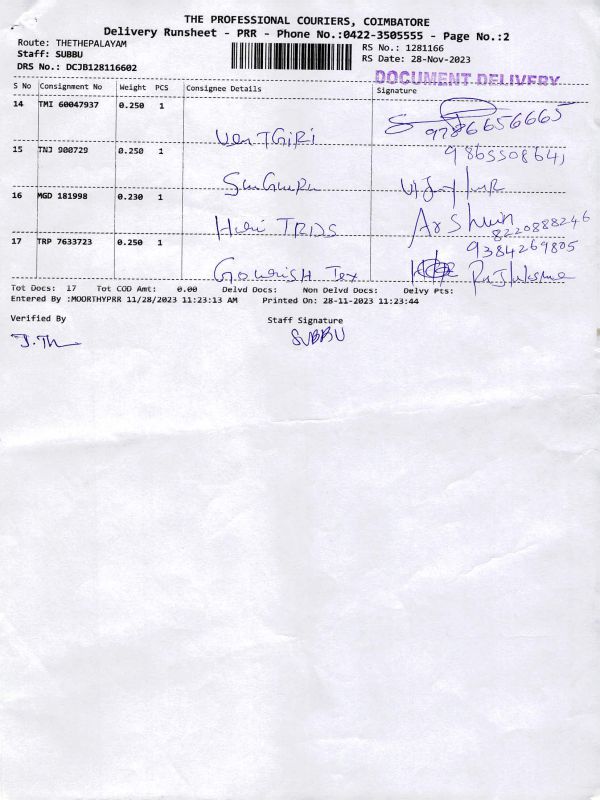 THE PROFESSIONAL COURIERS, COIMBATORE
Delivery Runsheet - PRR - Phone No.:0422-3505555 - Page No.:2
Route: THETHEPALAYAM RS No.: 1281166
Staff: SUBBU RS Date: 28-Nov-2023
DRS No.: DCJB128116602
DOCUMENT DELIVERY
S No Consignment No Weight PCS Consignee Details Signature
14 TMI 60047937 0.250 1
9786656665
15 TNJ 900729 0.250 1
16 MGD 181998 0.230 1
Hari
8220888246
17 TRP 7633723 0.250 1
9384269805
Tex
Tot Docs: 17 Tot COD Amt: 0.00 Delvd Docs: Non Delvd Docs: Delvy Pts:
Entered By :MOORTHYPRR 11/28/2023 11:23:13 AM Printed On: 28-11-2023 11:23:44
Verified By Staff Signature
SUBBU